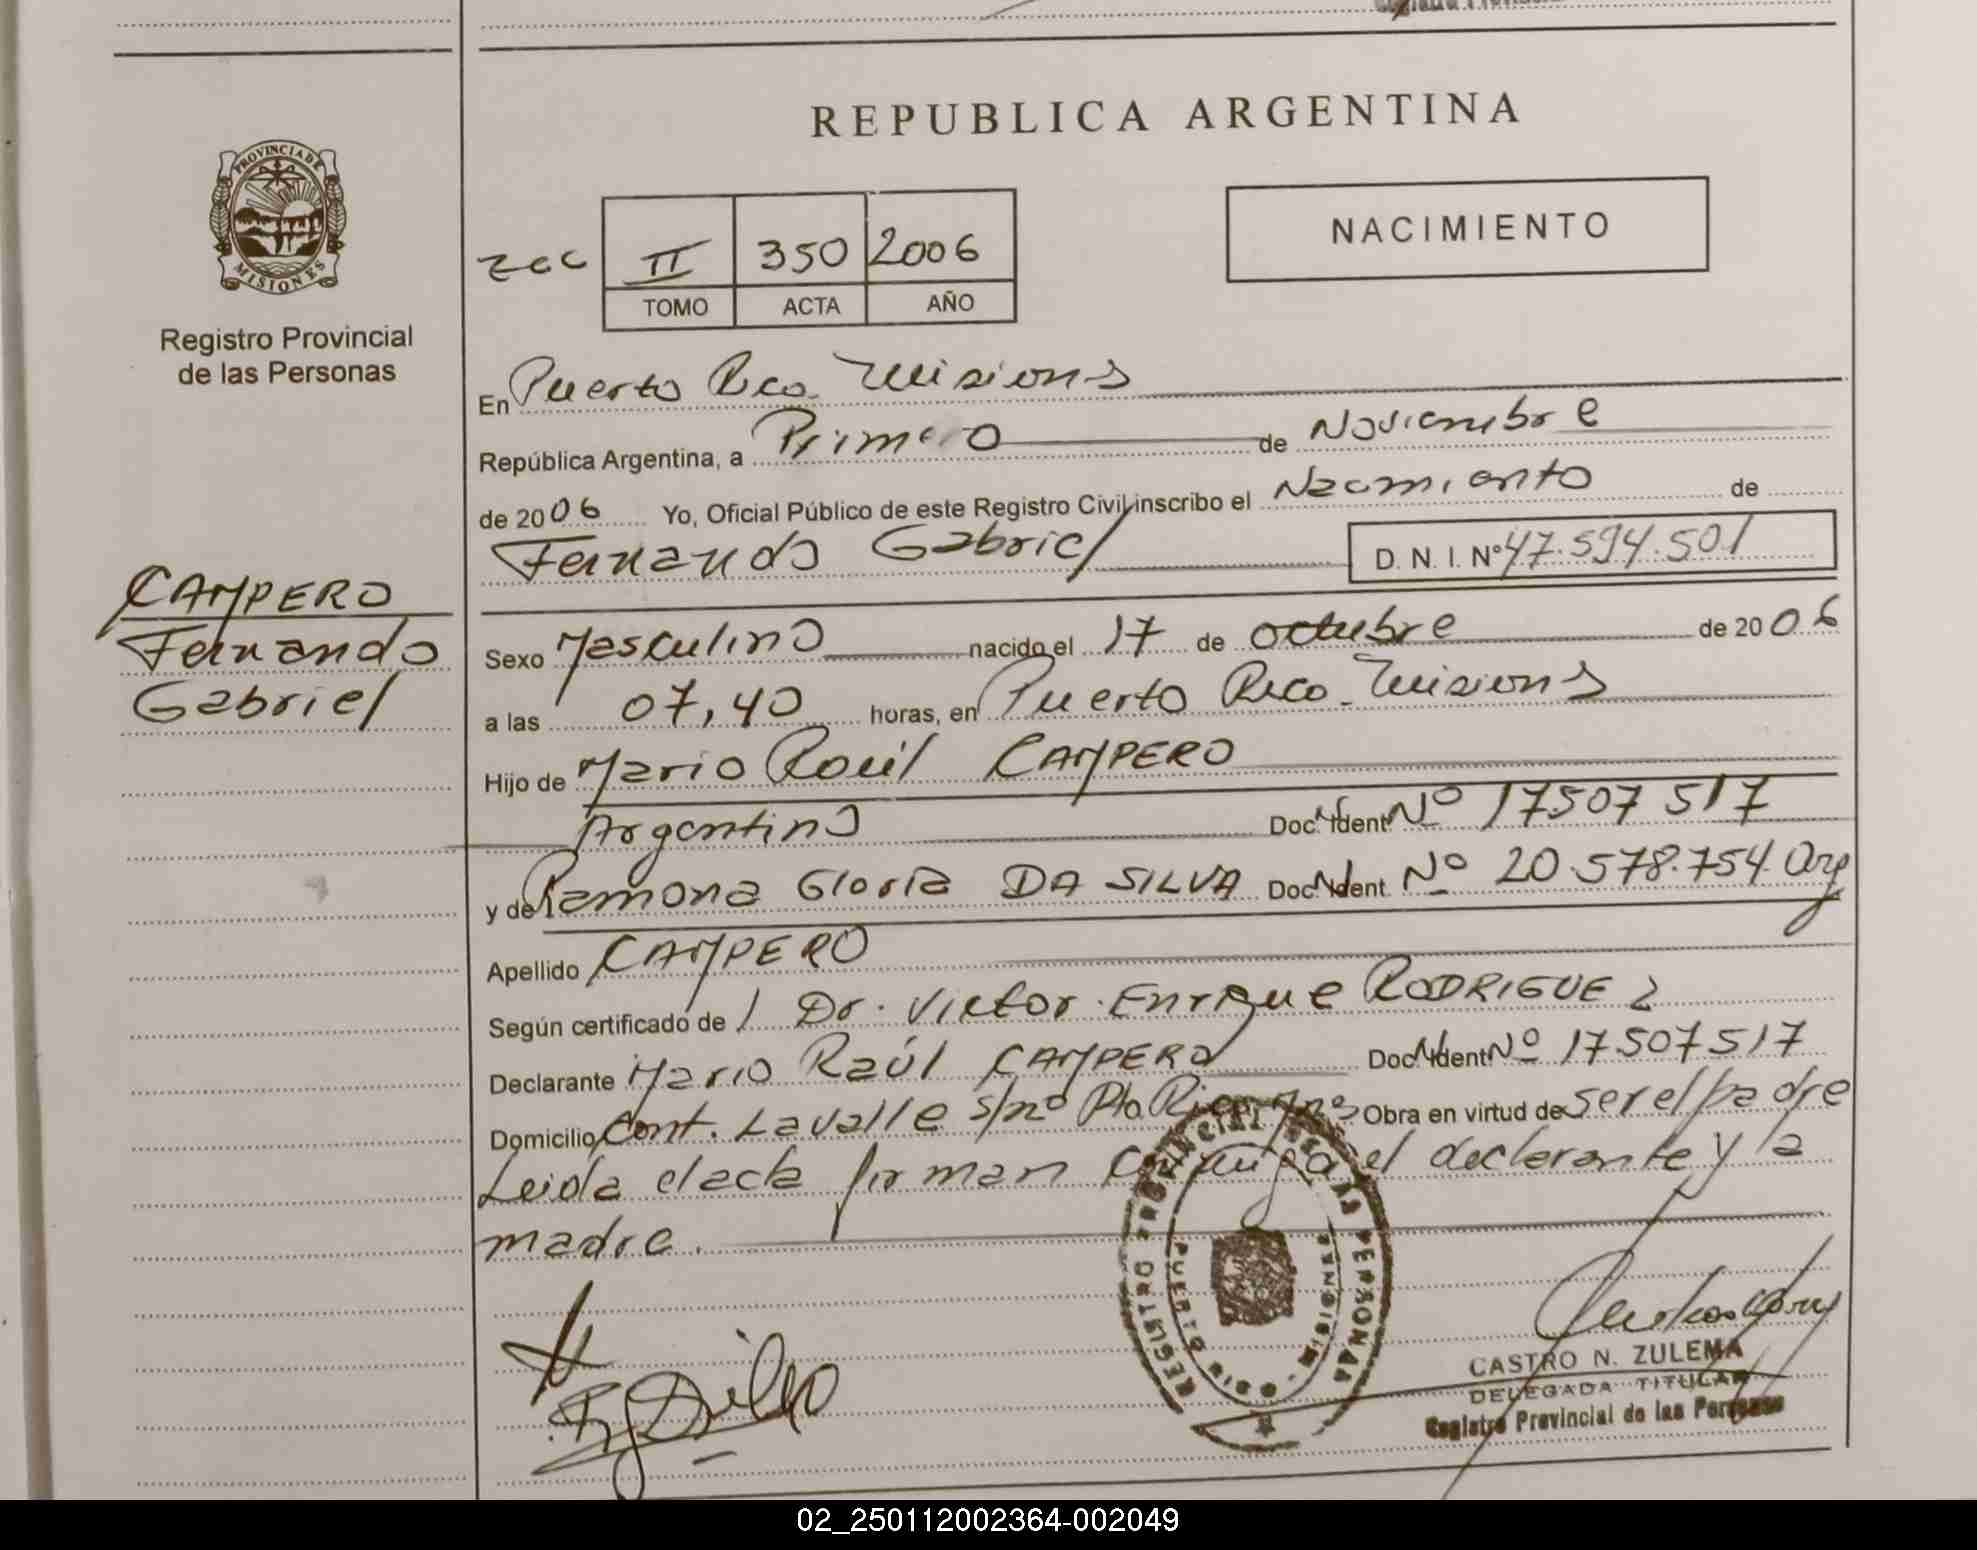 REPUBLICA ARGENTINA
PROVINCIA DE MISIONES
Registro Provincial
de las Personas
NACIMIENTO
II 350 2006
TOMO ACTA AÑO
En Puerto Rico. Misiones
República Argentina, a Primero de Noviembre
de 2006 Yo, Oficial Público de este Registro Civil inscribo el Nacimiento de
Fernando Gabriel D. N. I. Nº 47.594.501
CAMPERO
Fernando
Gabriel
Sexo Masculino nacido el 17 de octubre de 2006
a las 07,40 horas, en Puerto Rico. Misiones
Hijo de Mario Raúl CAMPERO
Argentino Doc. Ident. Nº 17507517
y de Ramona Gloria DA SILVA Doc. Ident. Nº 20.578.754. Arg
Apellido CAMPERO
Según certificado de Dr. Victor Enrique RODRIGUEZ
Declarante Mario Raúl CAMPERO Doc. Ident. Nº 17507517
Domicilio Cont. Lavalle s/nº Pto. Rico Mnes Obra en virtud de ser el padre
Leida el acta firman conmigo el declarante y la
madre.
REGISTRO PROVINCIAL DE LAS PERSONAS
PUERTO RICO - MISIONES
CASTRO N. ZULEMA
DELEGADA TITULAR
Registro Provincial de las Personas
02_250112002364-002049